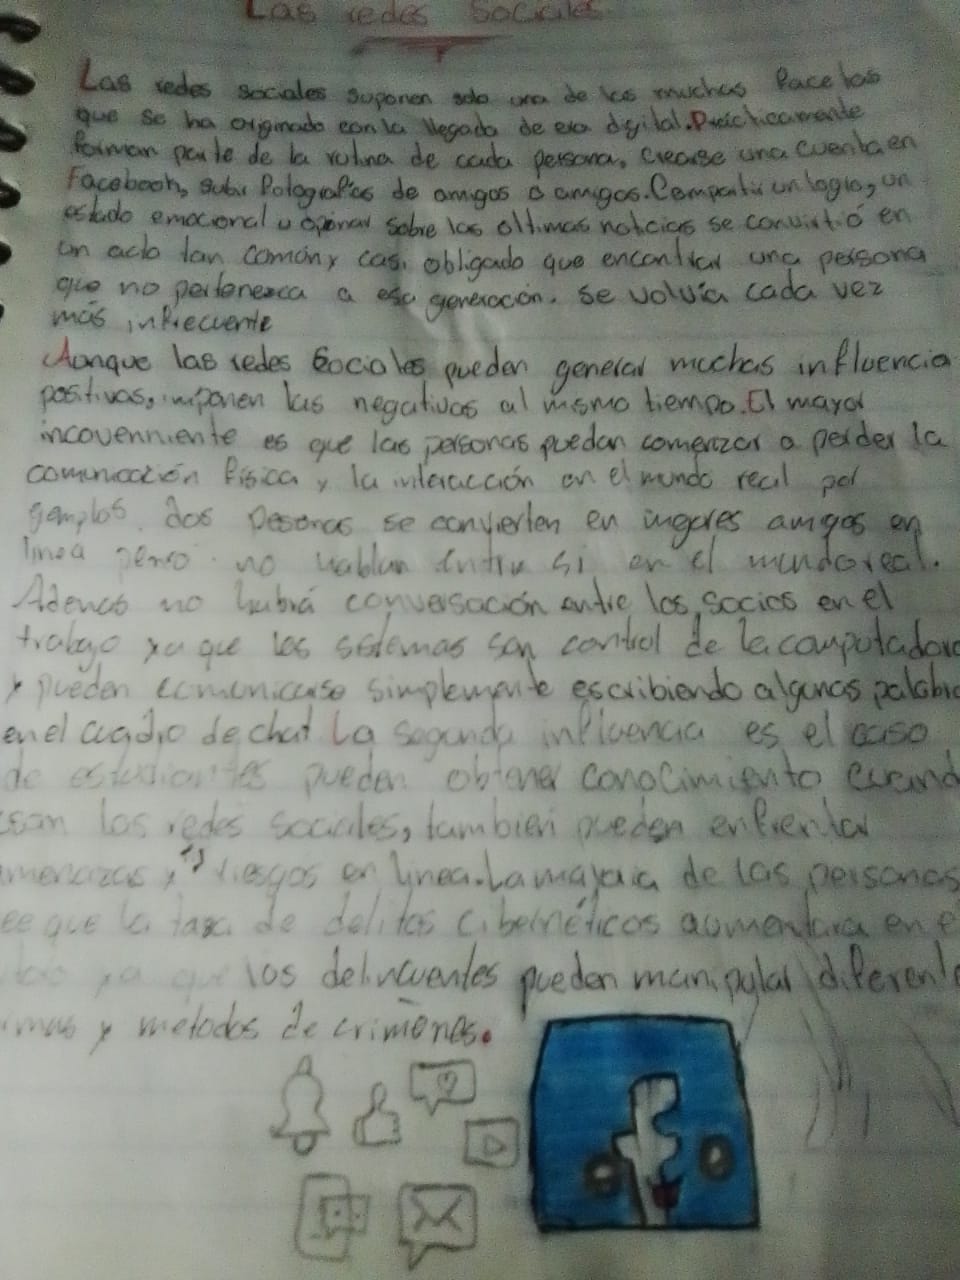 Las redes Sociales
Las redes sociales suponen solo una de las muchas facetas
que se ha originado con la llegada de era digital. Practicamente
forman parte de la rutina de cada persona, crearse una cuenta en
Facebook, subir fotografias de amigos o amigos. Compartir un logro, un
estado emocoral u opinar sobre las ultimas noticias se convirtió en
un acto tan común y casi obligado que encontrar una persona
que no pertenezca a esa generación. Se volvía cada vez
más infrecuente
Aunque las redes Sociales pueden generar muchas influencia
positivas, imponen las negativas al mismo tiempo. El mayor
incovenniente es que las personas puedan comenzar a perder la
comunicación física y la interacción en el mundo real por
dos se convierten en amigos en
linea no hablan entre si en el mundo real.
Ademas no habrá conversación entre los socios en el
trabajo ya que los sistemas son control de la computadora
y pueden comunicarse simplemente escribiendo algunas palabra
en el de chat La segunda influencia es el caso
de estudiantes pueden obtener conocimiento cuand
usan las redes sociales, tambien pueden enfrentar
amenazas y riesgos en linea. La mayoria de las personas
ee que la taza de delitos ciberneticos aumentara en e
ya que los delincuentes pueden manipular diferent
y metodos de crimenes.